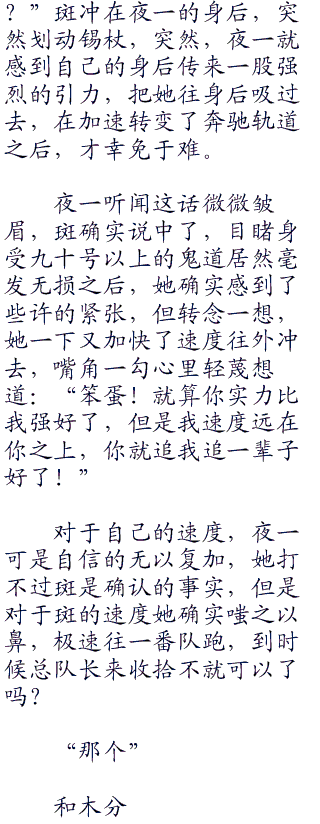 ？”斑冲在夜一的身后，突
然划动锡杖，突然，夜一就
感到自己的身后传来一股强
烈的引力，把她往身后吸过
去，在加速转变了奔驰轨道
之后，才幸免于难。
夜一听闻这话微微皱
眉，斑确实说中了，目睹身
受九十号以上的鬼道居然毫
发无损之后，她确实感到了
些许的紧张，但转念一想，
她一下又加快了速度往外冲
去，嘴角一勾心里轻蔑想
道：“笨蛋！就算你实力比
我强好了，但是我速度远在
你之上，你就追我追一辈子
好了！”
对于自己的速度，夜一
可是自信的无以复加，她打
不过斑是确认的事实，但是
对于斑的速度她确实嗤之以
鼻，极速往一番队跑，到时
候总队长来收拾不就可以了
吗？
“那个”
和木分